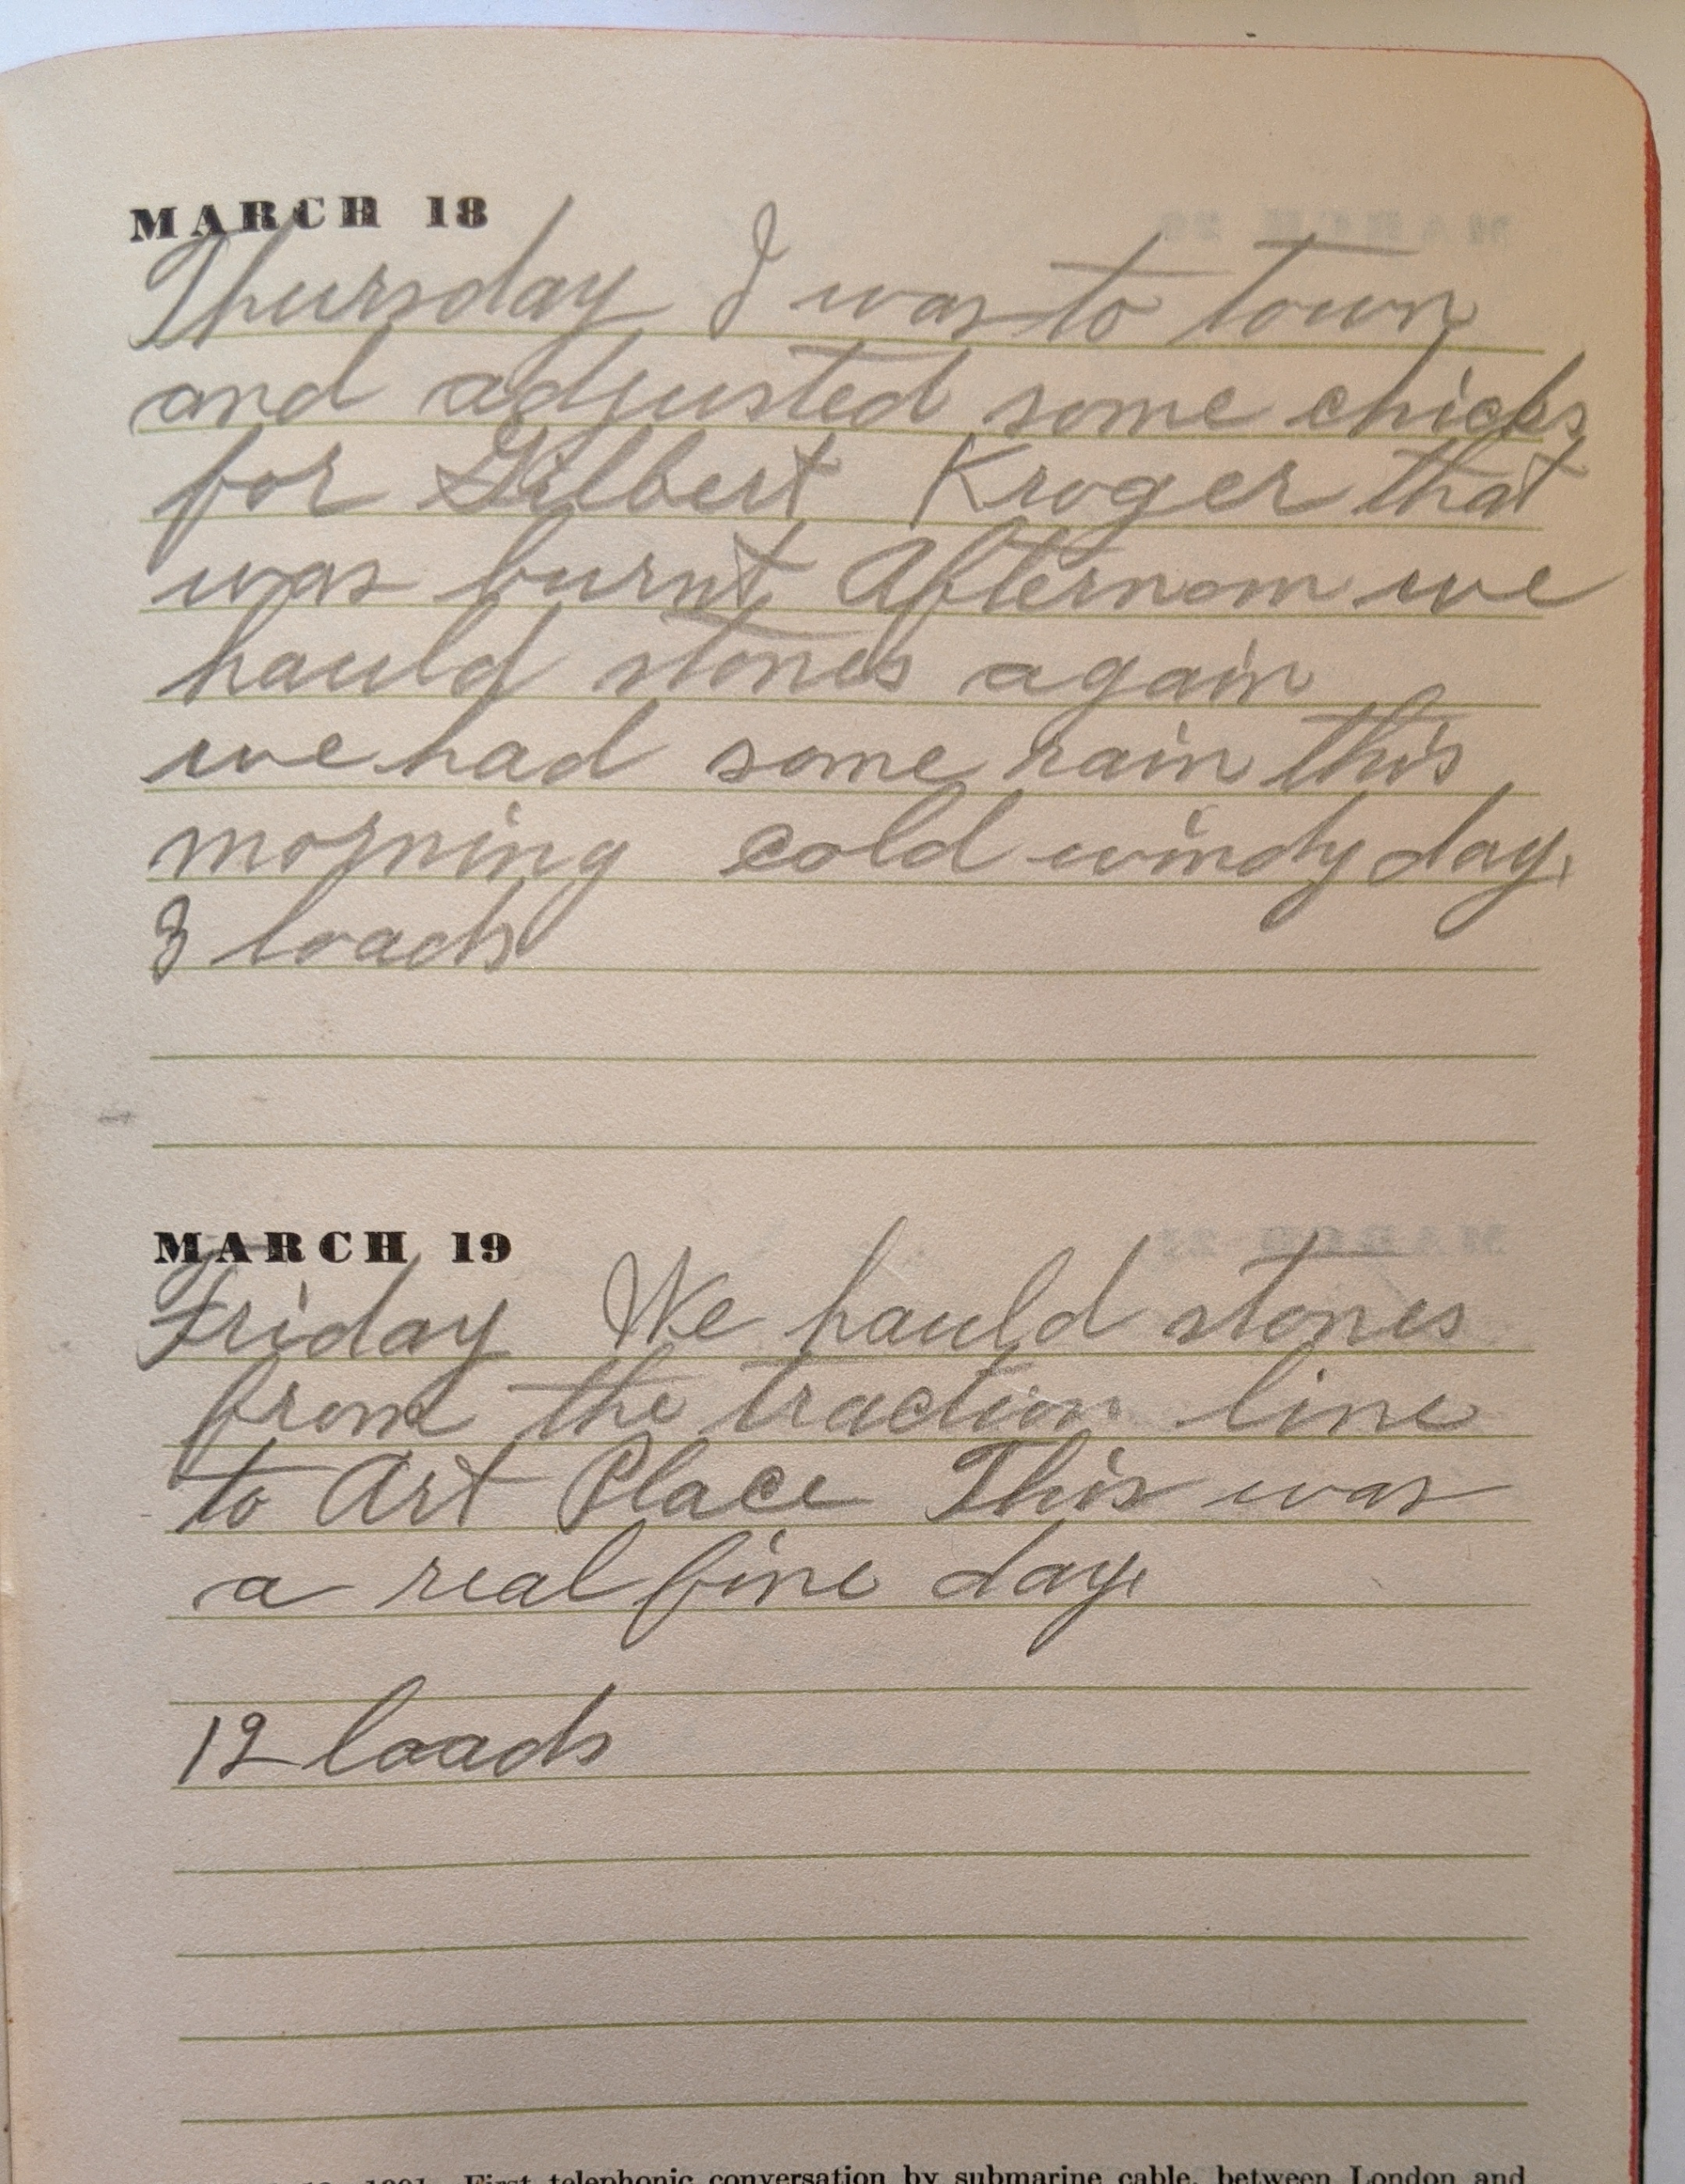 MARCH 18
Thursday I was to town
and adjusted some chicks
for Gilbert Kroger that
was burnt Afternoon we
hauld stones again
we had some rain this
morning cold windy day.
3 loads
MARCH 19
Friday We hauld stones
from the traction line
to Art Place This was
a real fine day.
12 loads
1891. First telephonic conversation by submarine cable, between London and